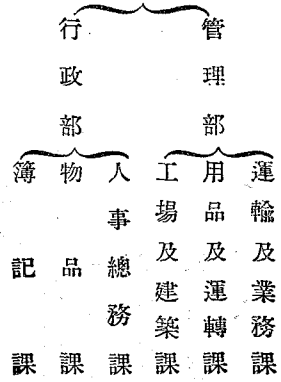 管理部
行政部
運輸及業務課
用品及運轉課
工場及建築課
人事總務課
物品課
簿記課